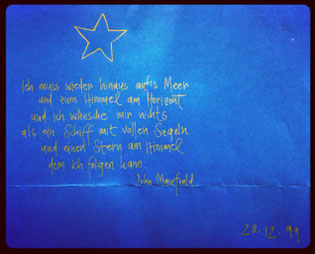 Ich muss wieder hinaus aufs Meer
und zum Himmel am Horizont
und ich wünsche mir nichts
als ein Schiff mit vollen Segeln
und einen Stern am Himmel
dem ich folgen kann.
John Masefield
28.12.99